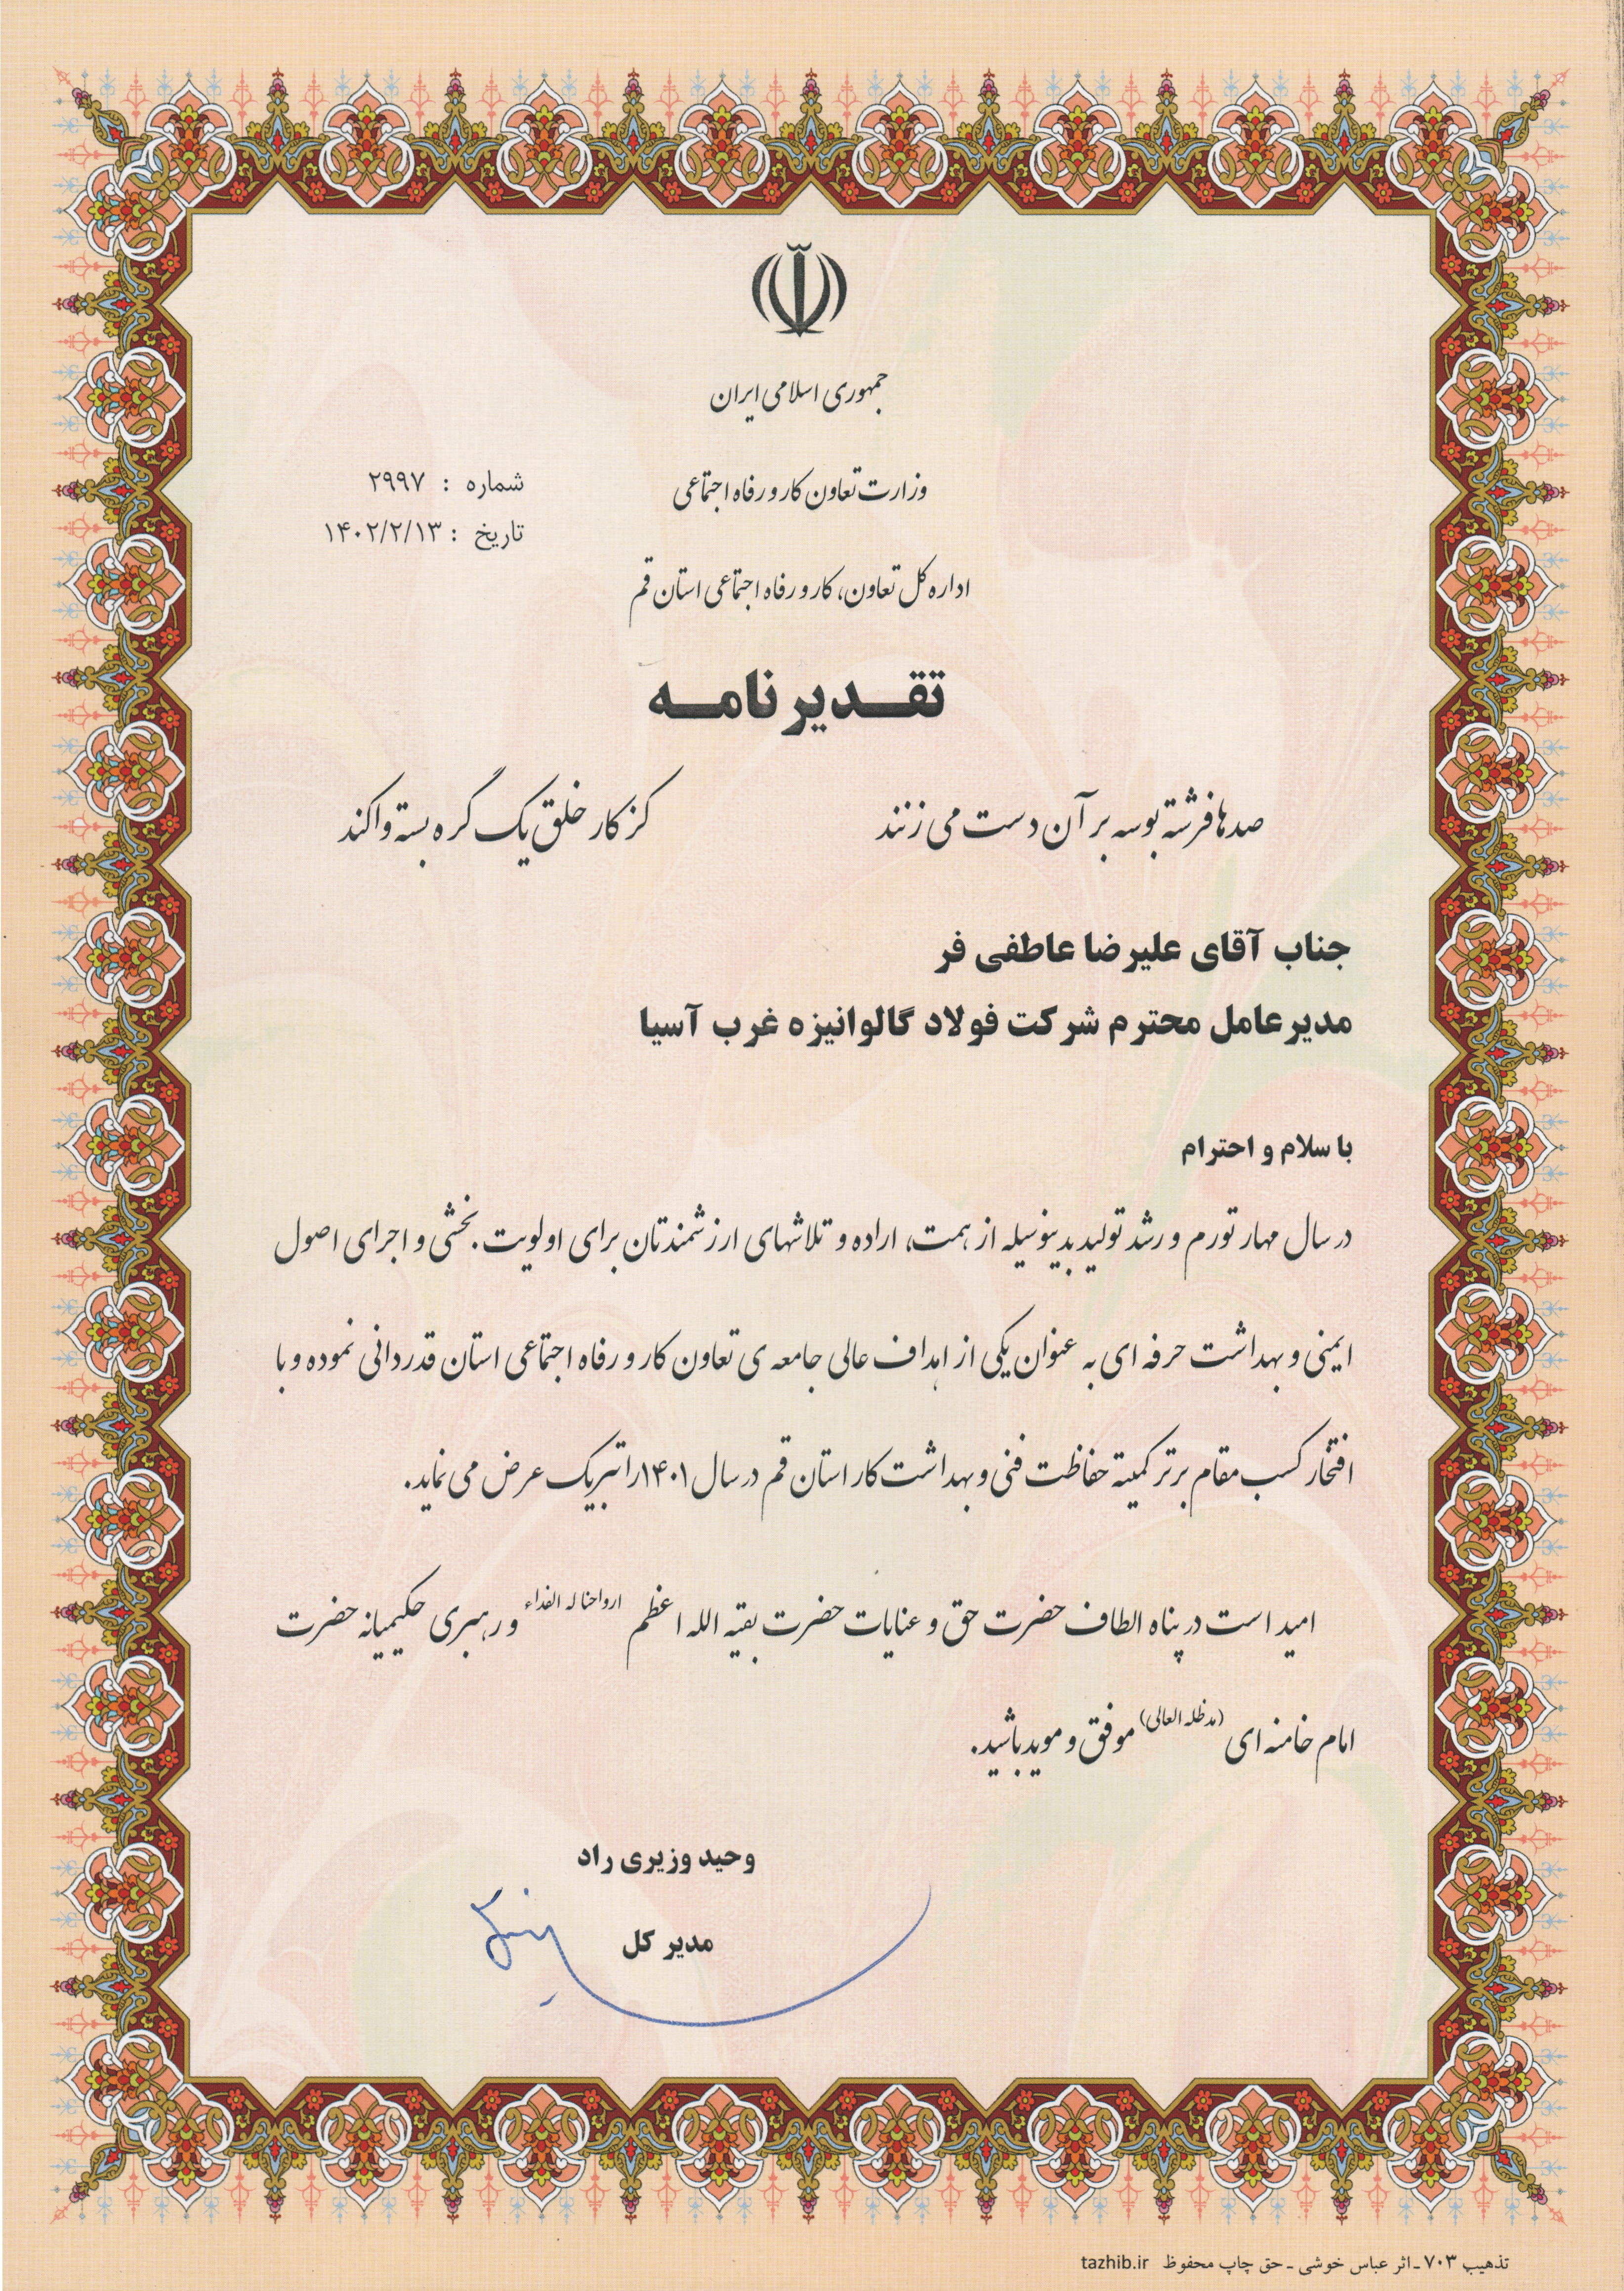 جمهوری اسلامی ایران
وزارت تعاون کار و رفاه اجتماعی
شماره : ۲۹۹۷
تاریخ : ۱۴۰۲/۲/۱۳
اداره کل تعاون، کار و رفاه اجتماعی استان قم
تقدیرنامه
صدها فرشته بوسه بر آن دست می زنند کز کار خلق یک گره بسته وا کند
جناب آقای علیرضا عاطفی فر
مدیرعامل محترم شرکت فولاد گالوانیزه غرب آسیا
با سلام و احترام
در سال مهار تورم و رشد تولید بدینوسیله از همت، اراده و تلاشهای ارزشمندتان برای اولویت بخشی و اجرای اصول
ایمنی و بهداشت حرفه ای به عنوان یکی از اهداف عالی جامعه ی تعاون کار و رفاه اجتماعی استان قدردانی نموده و با
افتخار کسب مقام برتر کمیته حفاظت فنی و بهداشت کار استان قم در سال ۱۴۰۱ را تبریک عرض می نماید.
امید است در پناه الطاف حضرت حق و عنایات حضرت بقیه الله اعظم ارواحنا له الفداء و رهبری حکیمیانه حضرت
امام خامنه ای (مدظله العالی) موفق و موید باشید.
وحید وزیری راد
مدیر کل
تذهیب ۷۰۳ - اثر عباس خوشی - حق چاپ محفوظ tazhib.ir